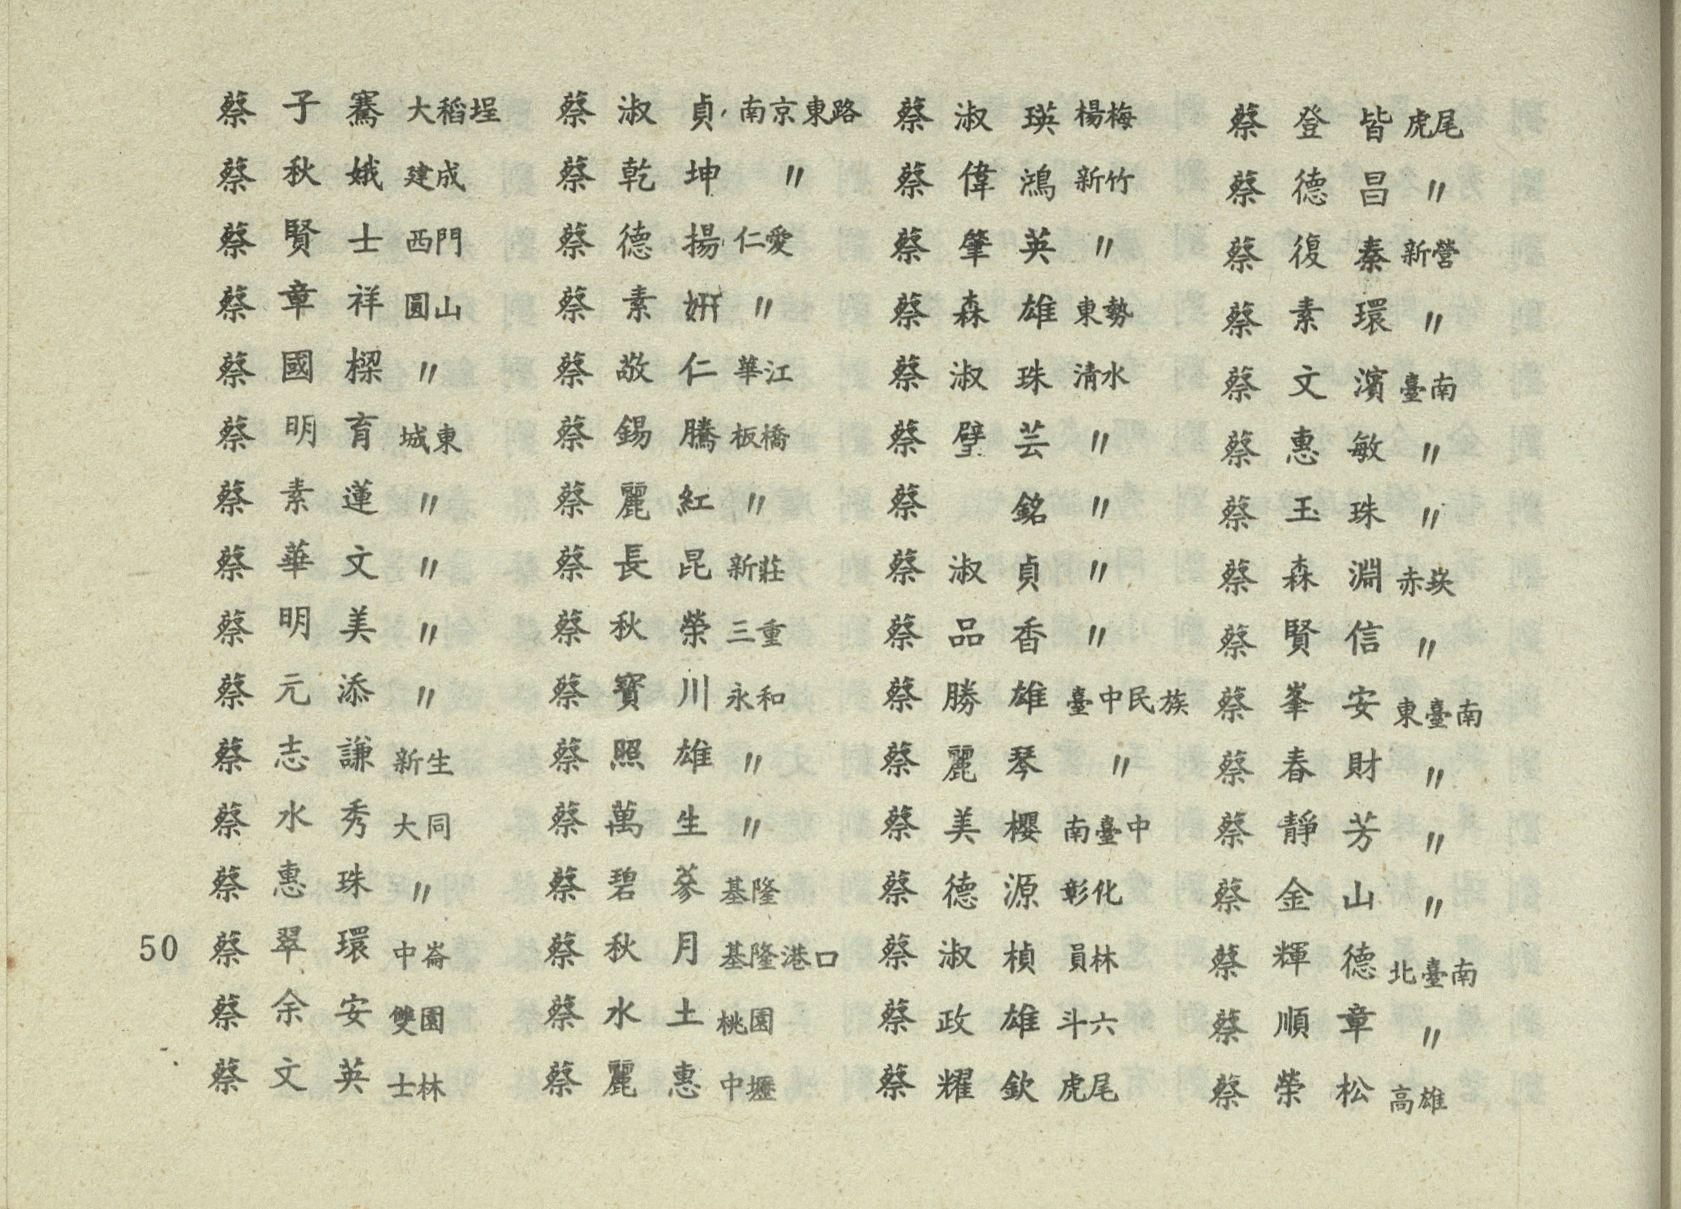 蔡子騫 大稻埕
蔡秋娥 建成
蔡賢士 西門
蔡章祥 圓山
蔡國樑 〃
蔡明育 城東
蔡素蓮 〃
蔡華文 〃
蔡明美 〃
蔡元添 〃
蔡志謙 新生
蔡水秀 大同
蔡惠珠 〃
50 蔡翠環 中崙
蔡余安 雙園
蔡文英 士林
蔡淑貞 南京東路
蔡乾坤 〃
蔡德揚 仁愛
蔡素姸 〃
蔡敬仁 華江
蔡錫騰 板橋
蔡麗紅 〃
蔡長昆 新莊
蔡秋榮 三重
蔡寶川 永和
蔡照雄 〃
蔡萬生 〃
蔡碧蔘 基隆
蔡秋月 基隆港口
蔡水土 桃園
蔡麗惠 中壢
蔡淑瑛 楊梅
蔡偉鴻 新竹
蔡肇英 〃
蔡森雄 東勢
蔡淑珠 清水
蔡壁芸 〃
蔡銘 〃
蔡淑貞 〃
蔡品香 〃
蔡勝雄 臺中民族
蔡麗琴 〃
蔡美櫻 南臺中
蔡德源 彰化
蔡淑楨 員林
蔡政雄 斗六
蔡耀欽 虎尾
蔡登皆 虎尾
蔡德昌 〃
蔡復秦 新營
蔡素環 〃
蔡文濱 臺南
蔡惠敏 〃
蔡玉珠 〃
蔡森淵 赤崁
蔡賢信 〃
蔡峯安 東臺南
蔡春財 〃
蔡靜芳 〃
蔡金山 〃
蔡輝德 北臺南
蔡順章 〃
蔡榮松 高雄